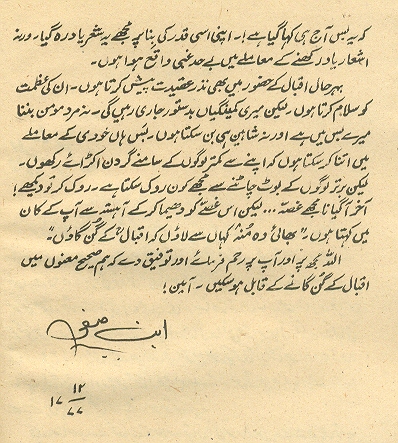 کہ یہ بس آج ہی کہا گیا ہے! ۔ اپنی اسی قدر کی بنا پر مجھے یہ شعر یاد رہ گیا۔ ورنہ
اشعار یاد رکھنے کے معاملے میں بے حد غبی واقع ہوا ہوں۔
بہرحال اقبال کے حضور میں بھی نذرِ عقیدت پیش کرتا ہوں۔ ان کی عظمت
کو سلام کرتا ہوں۔ لیکن میری کمینگیاں بدستور جاری رہیں گی۔ نہ مردِ مومن بننا
میرے بس میں ہے اور نہ شاہین ہی بن سکتا ہوں۔ بس ہاں خودی کے معاملے
میں اتنا کر سکتا ہوں کہ اپنے سے کمتر لوگوں کے سامنے گردن اکڑائے رکھوں۔
لیکن برتر لوگوں کے بوٹ چاٹنے سے مجھے کون روک سکتا ہے۔ روک کر تو دیکھے!
آخر آ گیا نا مجھے غصہ ... لیکن اس غصّے کو دھیما کر کے آہستہ سے آپ کے کان
میں کہتا ہوں۔ "بھائی وہ مُنہ کہاں سے لاؤں کہ اقبالؒ کے گُن گاؤں۔"
اللہ مجھ پر اور آپ پر رحم فرمائے اور توفیق دے کہ ہم صحیح معنوں میں
اقبال کے گُن گانے کے قابل ہو سکیں۔ آمین!
ابن صفی
۱۷ ۱۲/۷۷